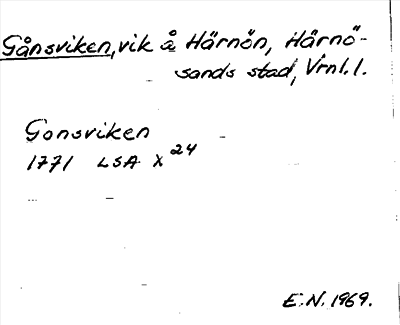 Gånsviken, vik å Härnön, Härnö-
sands stad, Vrnl. l.
Gonsviken
1771 LSA X 24
E.N. 1969.